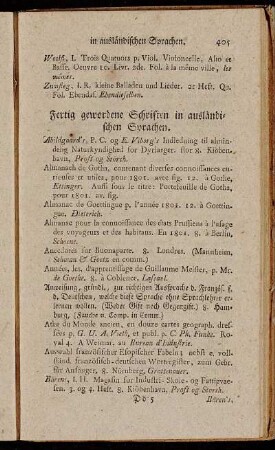 in ausländischen Sprachen. 405
Woelfl, I. Trois Quatuors p. Viol. Violoncelle, Alto et
Basse. Oeuvre 10. Livr. 2de. Fol. à la même ville, les
mêmes.
Zumsteeg, I. R. kleine Balladen und Lieder. 2r Heft. Qu.
Fol. Ebendas. Ebendieselben.
Fertig gewordene Schriften in ausländi-
schen Sprachen.
Abildgaard's, P. C. og E. Viborg's Indledning til almin-
delig Naturkyndighed for Dyrlaeger. 8. Kiöben-
havn, Proft og Storch.
Almanach de Gotha, contenant diverses connoissances cu-
rieuses et utiles, pour 1801. avec fig. 12. à Gothe,
Ettinger. Aussi sous le titre: Portefeuille de Gotha,
pour 1801. av. fig.
Almanac de Goettingue p. l'année 1801. 12. à Goettin-
gue, Dieterich.
Almanac pour la connoissance des états Prussiens à l'usage
des voyageurs et des habitans. En 1801. 8. à Berlin,
Schoene.
Anecdotes for Buonaparte. 8. Londres. (Mannheim,
Schwan & Goetz en comm.)
Années, les, d'apprentissage de Guillaume Meister, p. Mr.
de Goethe. 8. à Coblence, Lassaul.
Anweisung, gründl., zur richtigen Aussprache d. Französ. f.
d. Deutschen, welche diese Sprache ohne Sprachlehrer er-
lernen wollen. 8. Ham-
burg. (Fauche in Comp. in Comm.)
Atlas du Monde ancien, en douze cartes géograph. dres-
sées p. G. U. A. Vieth, et publ. p. C. Ph. Funke. Ro-
yal 4. A Weimar, au Bureau d'Industrie.
Auswahl französischer Esopischer Fabeln; nebst e. vollständ.
französisch-deutschen Wortregister, zum Gebr.
für Anfänger. 8. Nürnberg, Grattenauer.
Barens, I. H. Magasin for Industri- Skole- og Fattigvae-
sen. 3. og 4. Heft. 8. Kiöbenhavn. Proft og Storch.
Dd 5 Baren's,